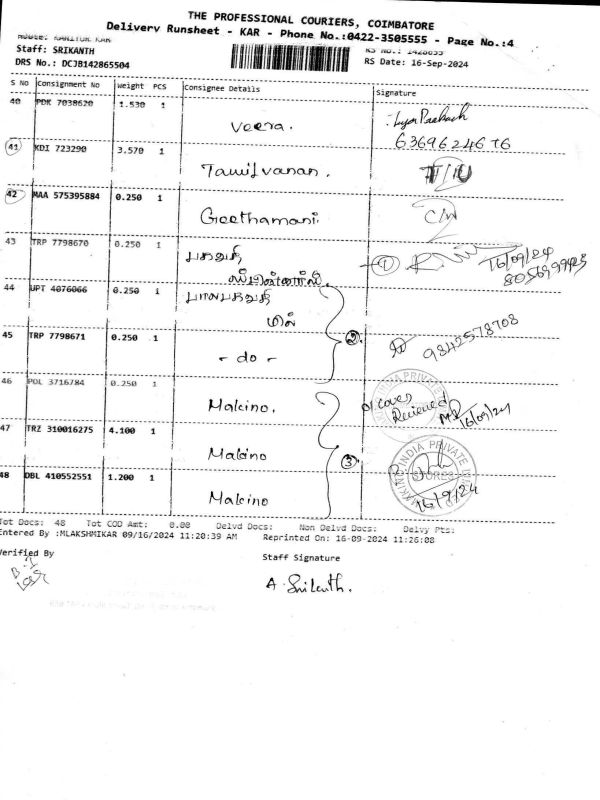 THE PROFESSIONAL COURIERS, COIMBATORE
Delivery Runsheet - KAR - Phone No.:0422-3505555 - Page No.:4
Staff: SRIKANTH
RS No.: 1428655
DRS No.: DCJB142865504
RS Date: 16-Sep-2024
S No Consignment No Weight PCS Consignee Details Signature
40 PDK 7038620 1.530 1 Veera.
63696 246 76
41 KDI 723290 3.570 1 Tamilvanan.
42 MAA 575395884 0.250 1 Geethamani. C/N
43 TRP 7798670 0.250 1 பகவதி
① 16/09/24
44 UPT 4076066 0.250 1 பாலபகவதி
மில்
②
45 TRP 7798671 0.250 1 - do - 9842578708
46 POL 3716784 0.250 1 Makino.
01 cover
Recieved
16/09/24
47 TRZ 310016275 4.100 1 Makino
③
48 DBL 410552551 1.200 1 Makino
STORES
16/9/24
Tot Docs: 48 Tot COD Amt: 0.00 Delvd Docs: Non Delvd Docs: Delvy Pts:
Entered By :MLAKSHMIKAR 09/16/2024 11:20:39 AM Reprinted On: 16-09-2024 11:26:08
Verified By Staff Signature
A. Srikanth.